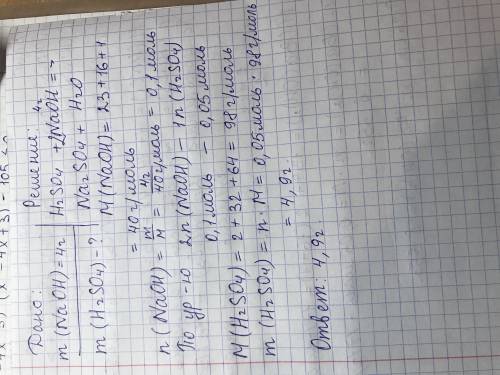 -4x+3) - 105
Дано:
m (NaOH) = 4г
m (H2SO4) - ?
Решение:
4г
H2SO4 + 2NaOH = 
Na2SO4 + H2O
M (NaOH) = 23 + 16 + 1
= 40 г/моль
n (NaOH) = m/M = 4г/40 г/моль = 0,1 моль
По ур-ю 2n (NaOH) - 1n (H2SO4)
0,1 моль - 0,05 моль
M (H2SO4) = 2 + 32 + 64 = 98 г/моль
m (H2SO4) = n · M = 0,05 моль · 98 г/моль
= 4,9 г
Ответ: 4,9 г